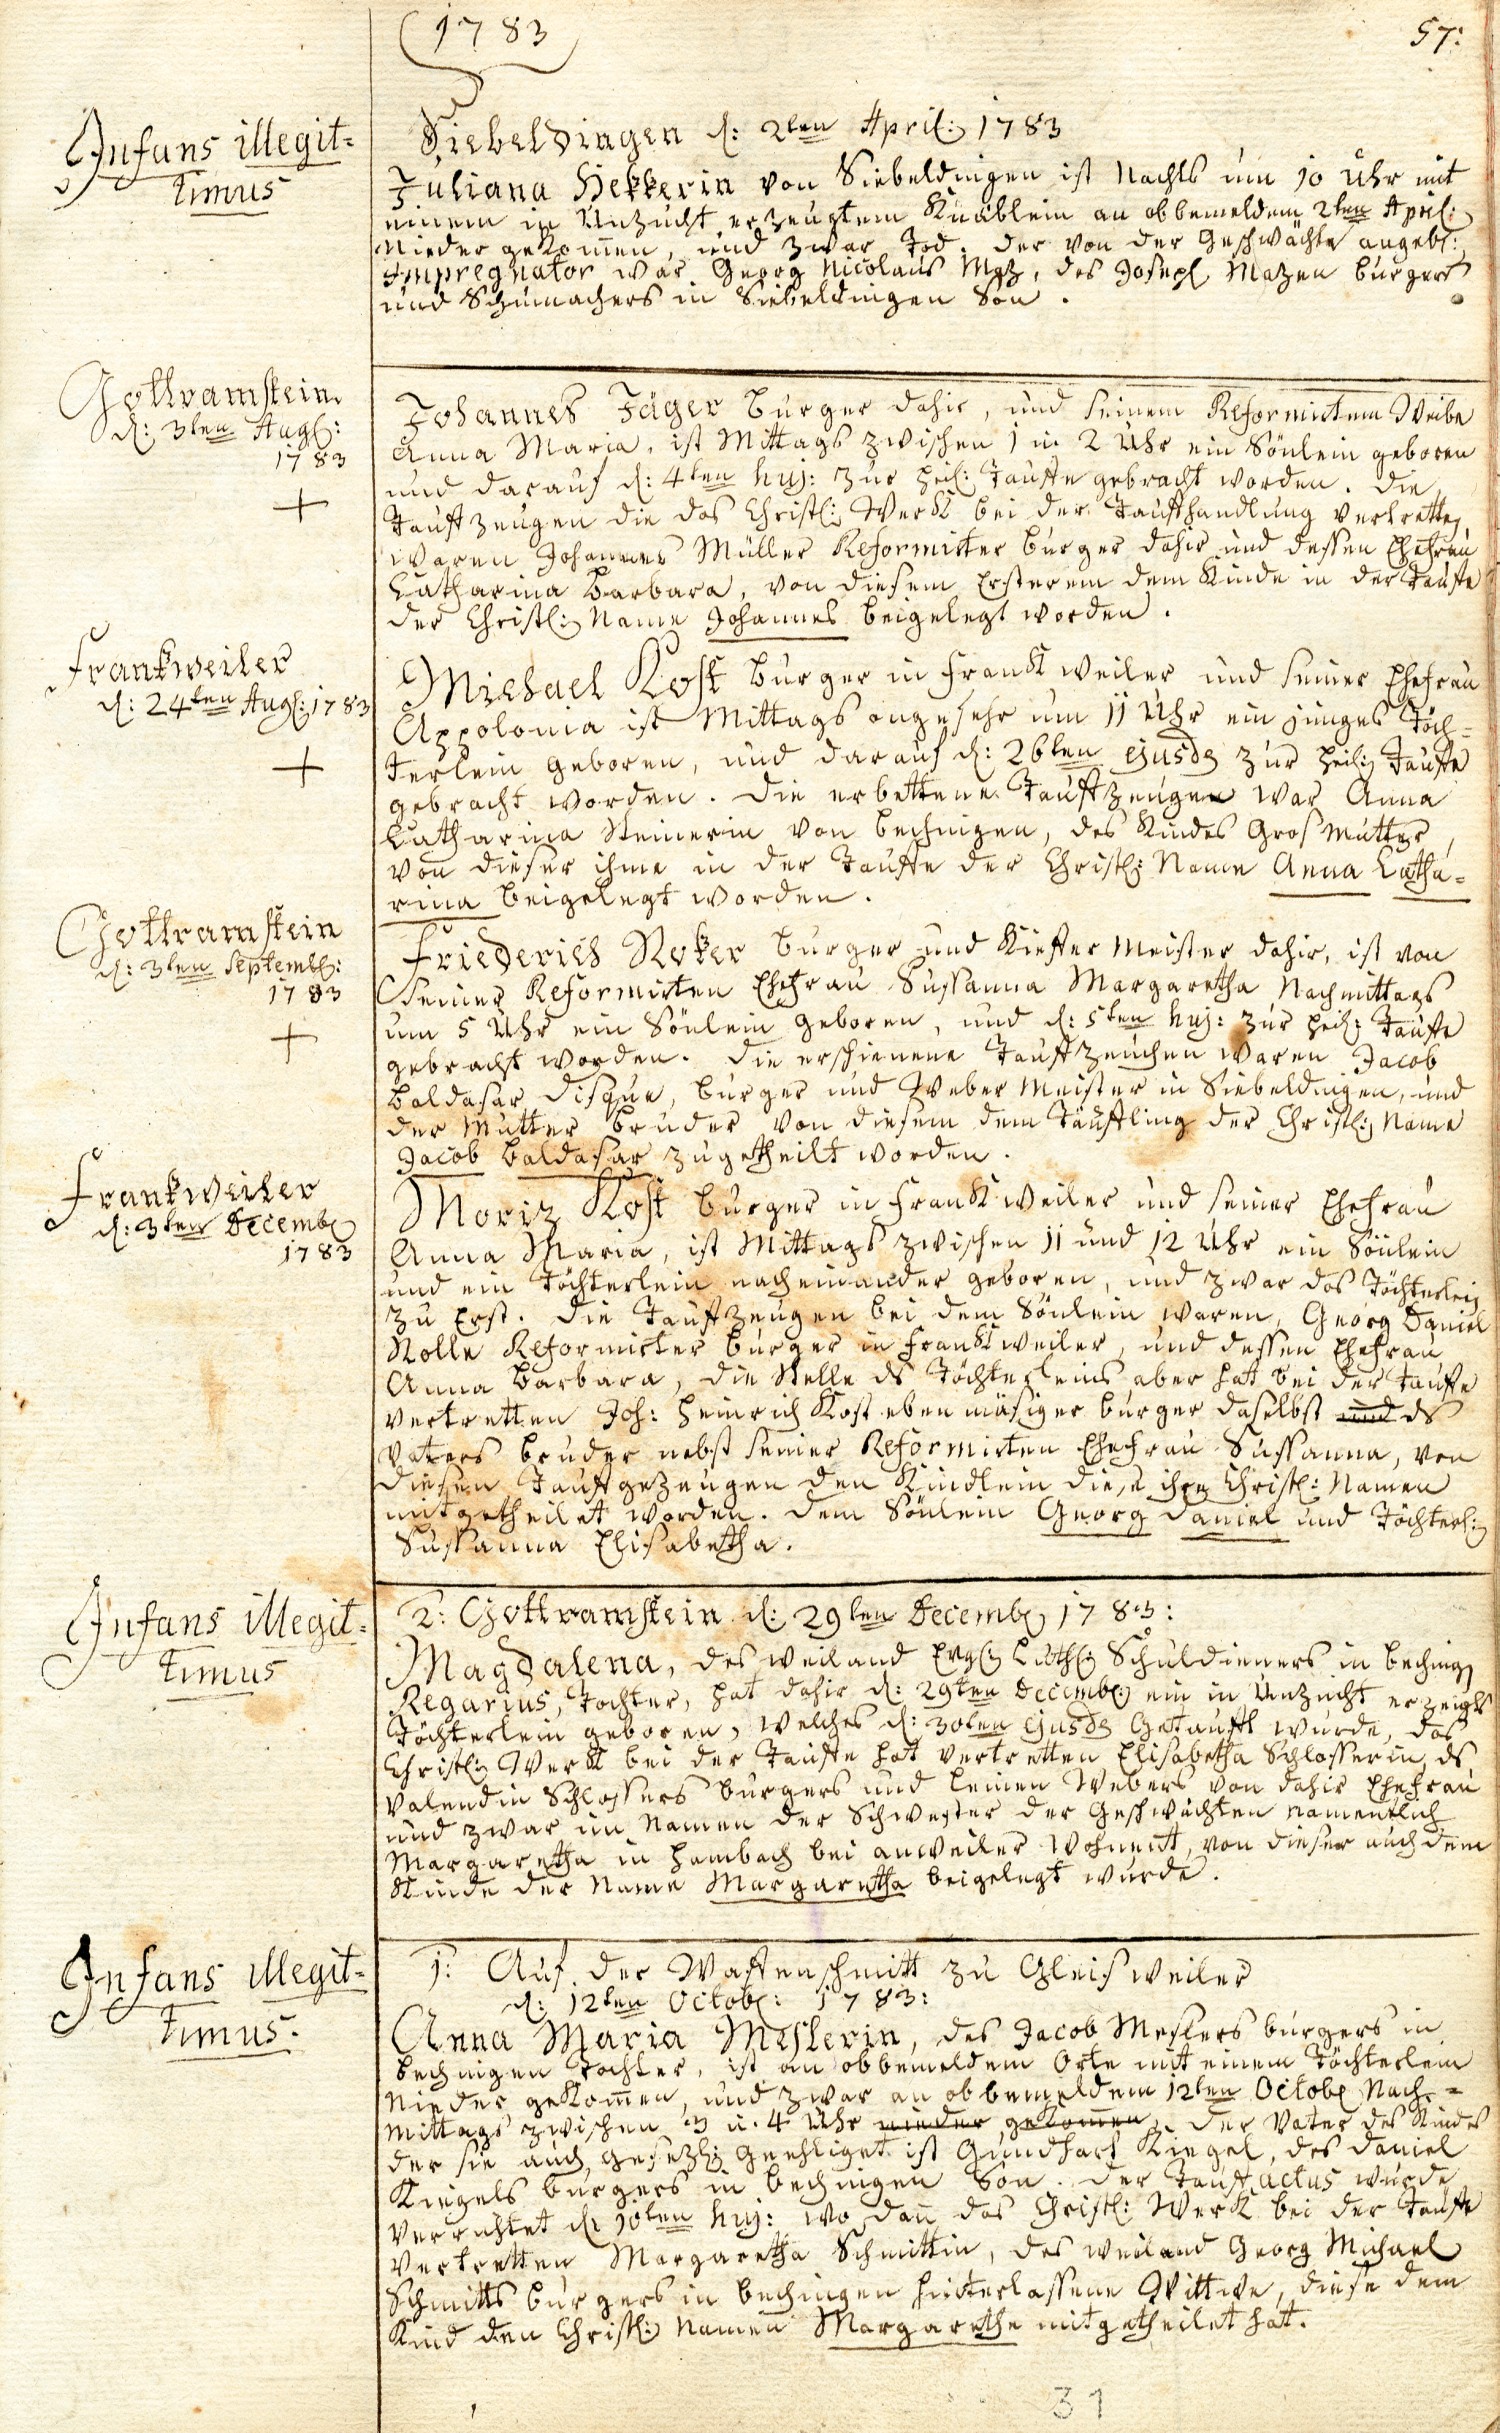 1783
57:
Infans illegit=
timus
Siebeldingen d: 2ten April: 1783
Juliana Hekkerin von Siebeldingen ist Nachts um 10 Uhr mit
einem in Unzucht erzeugtem Knäblein an obbemeldem 2ten April:
Nieder gekom̅en, und zwar Tod. der von der Geschwächte angebl:
Impregnator war Georg Nicolaus Maz, des Joseph Mazen burgers
und Schumachers in Siebeldingen Son.
Gottramstein
d: 3ten Aug:
1783
Johannes Jäger burger dahir, und seinem Reformirtem Weibe
Anna Maria, ist Mittags zwischen 1 in 2 Uhr ein Sönlein geboren
und darauf d: 4ten huj: zur heil: Tauffe gebracht worden. Die
Tauffzeugen die das Christl: Werk bei der Tauffhandlung vertretten,
waren Johannes Müller Reformirter burger dahir und dessen Ehefrau
Catharina Barbara, von diesem Ersterem dem Kinde in der Tauffe
der Christl: Name Johannes beigelegt worden.
Frankweiler
d: 24ten Aug: 1783
Michael Kost burger in Frankweiler und seiner Ehefrau
Appolonia ist Mittags ongefehr um 11 Uhr ein junges Töch=
terlein geboren, und darauf d: 26ten ejusd: zur heil: Tauffe
gebracht worden. Die erbettene Tauffzeugen war Anna
Catharina Steinerin von bechingen, des Kindes Gros Mutter,
von dieser ihme in der Tauffe der Christl: Name Anna Catha=
rina beigelegt worden.
Gottramstein
d: 3ten Septemb:
1783
Friederich Roker burger und Kieffer Meister dahir, ist von
seiner Reformirten Ehefrau Sussanna Margaretha Nachmittags
um 5 Uhr ein Sönlein geboren, und d: 5ten huj: zur heil: Tauffe
gebracht worden. Die erschienene Tauffzeuchen waren Jacob
Baldasar Disque, burger und Weber Meister in Siebeldingen, und
der Mutter bruder von diesem dem Täuffling der Christl: Name
Jacob Baldasar zugetheilt worden.
Frankweiler
d: 3ten Decemb:
1783
Moriz Kost burger in Frankweiler und seiner Ehefrau
Anna Maria, ist Mittags zwischen 11 und 12 Uhr ein Sönlein
und ein Töchterlein nacheinander geboren, und zwar das Töchterlein
zu Erst. Die Tauffzeugen bei dem Sönlein waren, Georg Daniel
Nolle Reformirter burger in Frankweiler, und dessen Ehefrau
Anna Barbara, die Stelle ds Töchterleins aber hat bei der Tauffe
vertretten Joh: Heinrich Kost ebenmäsiger burger daselbst und ds
Vaters bruder nebst seiner Reformirten Ehefrau Sussanna, von
diesen Tauffgezeugen den Kindlein diese ihre Christl: Namen
mitgetheilet worden. Dem Sönlein Georg Daniel und Töchterl:
Sussanna Elisabetha.
Infans illegit=
timus
2: Gottramstein d: 29ten Decemb: 1783:
Magdalena, des weiland Evgl: Luth: Schuldieners in beching:
Regarius, Tochter, hat dahir d: 29ten Decemb: ein in Unzucht erzeigts
Töchterlein geboren, welches d: 30ten ejusd: Getaufft wurde, das
Christl: Werk bei der Tauffe hat vertretten Elisabetha Schlosserin, ds
Valendin Schlossers burgers und leinen Webers von dahir Ehefrau
und zwar im Namen der Schwester der Geschwächten namentlich
Margaretha in Hambach bei anweiler wohnent, von dieser auch dem
Kinde der Name Margaretha beigelegt wurde.
Infans illegit=
timus.
1: Auf der Waffenschmitt zu Gleisweiler
d: 12ten Octob: 1783:
Anna Maria Meslerin, des Jacob Meslers burgers in
bechingen Tochter, ist an obbemeldem Orte mit einem Töchterlein
Nieder gekom̅en, und zwar an obbemeldem 12ten Octob: Nach=
mittags zwischen 3 u. 4 Uhr nieder gekom̅en. Der Vater des Kindes
der sie auch gesezl: geehliget ist Gundhart Kiegel, des Daniel
Kiegels burgers in bechingen Son. Der Tauffactus wurde
verrichtet d: 10ten huj: wo dan̅ das Christl: Werk bei der Tauffe
vertretten Margaretha Schmittin, des weiland Georg Michael
Schmitts burgers in bechingen hinterlassene Wittwe, diese dem
Kind den Christl: Namen Margaretha mitgetheilet hat.
31